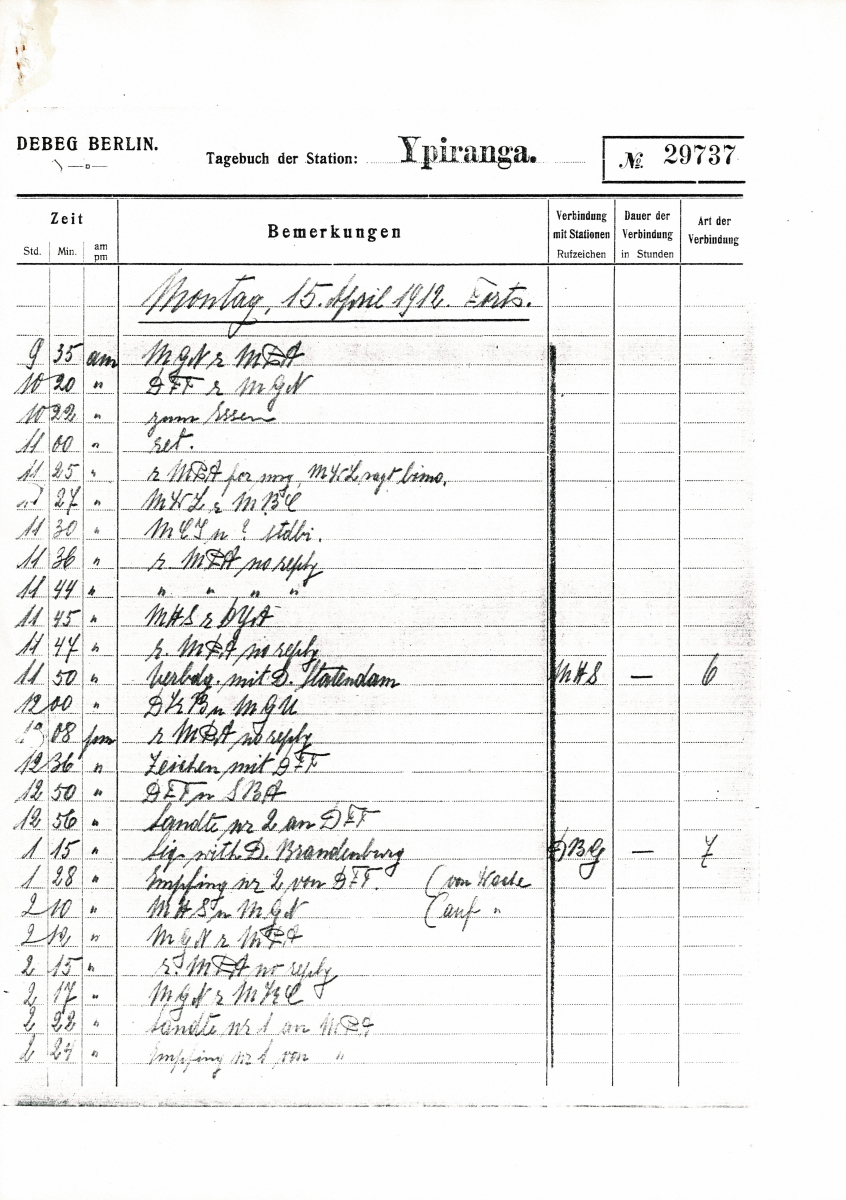 DEBEG BERLIN.
Tagebuch der Station: Ypiranga.
No. 29737
Zeit Bemerkungen Verbindung mit Stationen Rufzeichen Dauer der Verbindung in Stunden Art der Verbindung
Std. Min. am pm
Montag, 15. April 1912. Forts.
9 35 am MGN r MPA
10 20 " DFT r MGN
10 22 " zum Essen
11 00 " ret.
11 25 " r MPA for msg, MWL sagt
27 " MWL r MBC
11 30 " n ? stdbi.
11 36 " r. MPA no reply
11 44 " " " " "
11 45 " MHS r DYA
11 47 " r. MPA no reply
11 50 " Verbdg. mit D. Statendam MHS — 6
12 00 " DKB n MGU
08 pm r MPA no reply
12 36 " Zeichen mit DFT
12 50 " DFT n SBA
12 56 " Sandte nr 2 an DFT
1 15 " Sigs with D. Brandenburg DBG — 7
1 28 " Empfing nr 2 von DFT. (von Wache
2 10 " MHS n MGN (auf "
2 12 " MGN r MPA
2 15 " r. MPA no reply
2 17 " MGN r
2 22 " Sandte nr 1 an
2 24 " Empfing nr 1 von "